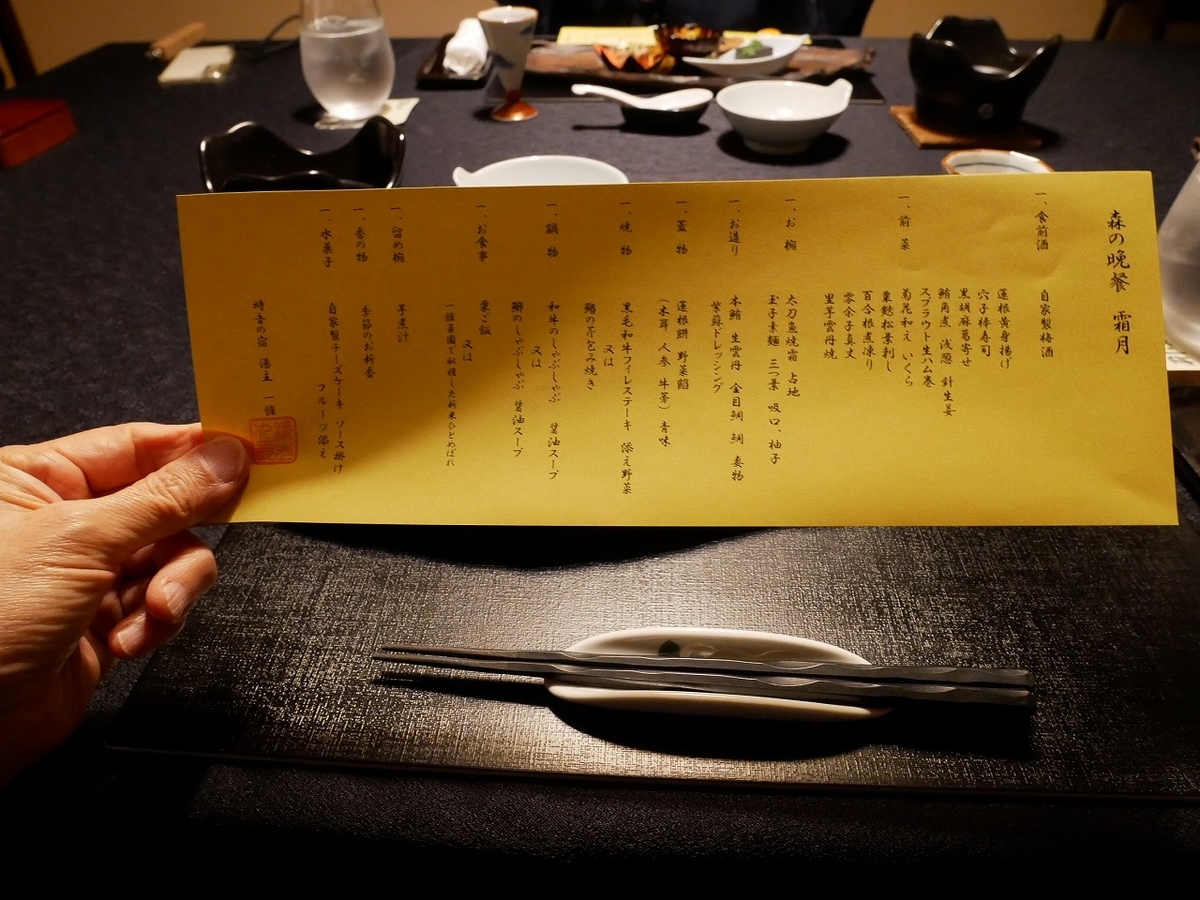 森の晩餐 霜月
一、食前酒 自家製梅酒
一、前菜
蓮根黄身揚げ
穴子棒寿司
黒胡麻葛寄せ
鮪角煮 浅葱 針生姜
スプラウト生ハム巻
菊花和え いくら
粟麩松葉刺し
百合根煮凍り
零余子真丈
里芋雲丹焼
一、お椀 太刀魚焼霜 占地
玉子素麺 三つ葉 吸口、柚子
一、お造り 本鮪 生雲丹 金目鯛 鯛 妻物
紫蘇ドレッシング
一、蓋物 蓮根餅 野菜餡
（木耳 人参 牛蒡） 青味
一、焼物 黒毛和牛フィレステーキ 添え野菜
又は
鰆の芹包み焼き
一、鍋物 和牛のしゃぶしゃぶ 醤油スープ
又は
鰤のしゃぶしゃぶ 醤油スープ
一、お食事 栗ご飯
又は
一條菜園で収穫した新米ひとめぼれ
一、留め椀 芋煮汁
一、香の物 季節のお新香
一、水菓子 自家製チーズケーキ ソース掛け
フルーツ添え
時音の宿 湯主 一條